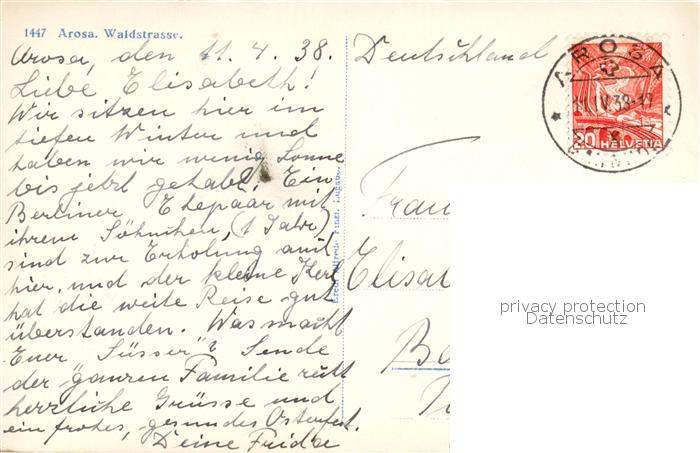 1447 Arosa. Waldstrasse.
Arosa, den 11.4.38.
Liebe Elisabeth!
Wir sitzen hier im
tiefen Winter und
haben wir wenig Sonne
bis jetzt gehabt. Ein
Berliner Ehepaar mit
ihrem Söhnchen, (1 Jahr)
sind zur Erholung auch
hier, und der kleine Kerl
hat die weite Reise gut
überstanden. Was macht
Euer Süsser? Sende
der ganzen Familie
herzliche Grüsse und
ein frohes, gesundes Osterfest.
Deine Frida
Deutschland
AROSA
11.IV.38-17
20 HELVETIA
Frau
Elisa
privacy protection
Datenschutz